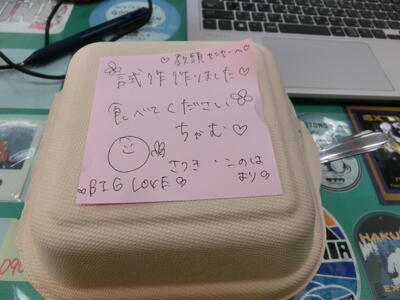 ♡教頭センセーへ♡
試作作りました♡
食べてください
ちゃむ♡
さつき・このは
より
BIG LOVE
HAKU
090